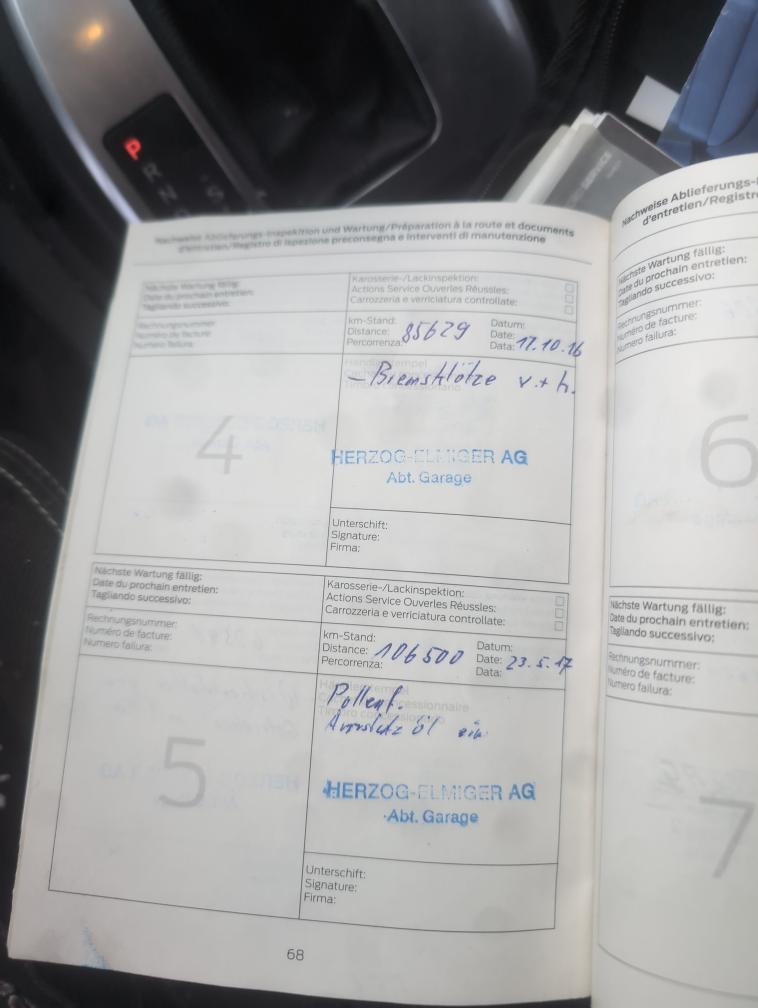 P
R
N
Nachweise Ablieferungs-Inspektion und Wartung/Préparation à la route et documents
d'entretien/Registro di ispezione preconsegna e interventi di manutenzione
Nächste Wartung fällig:
Date du prochain entretien:
Tagliando successivo:
Karosserie-/Lackinspektion:
Actions Service Ouverles Réussles:
Carrozzeria e verriciatura controllate:
Rechnungsnummer:
Numéro de facture:
Numero failura:
km-Stand:
Distance: 85629
Percorrenza:
Datum:
Date:
Data: 17.10.16
- Bremsklötze v.+ h.
4
HERZOG-ELMIGER AG
Abt. Garage
Unterschift:
Signature:
Firma:
Nächste Wartung fällig:
Date du prochain entretien:
Tagliando successivo:
Karosserie-/Lackinspektion:
Actions Service Ouverles Réussles:
Carrozzeria e verriciatura controllate:
Rechnungsnummer:
Numéro de facture:
Numero failura:
km-Stand:
Distance: 106500
Percorrenza:
Datum:
Date: 23.5.17
Data:
Pollenf.
öl
5
HERZOG-ELMIGER AG
Abt. Garage
Unterschift:
Signature:
Firma:
68
Nachweise Ablieferungs-
d'entretien/Registr
Nächste Wartung fällig:
Date du prochain entretien:
Tagliando successivo:
Rechnungsnummer:
Numéro de facture:
Numero failura:
6
Nächste Wartung fällig:
Date du prochain entretien:
Tagliando successivo:
Rechnungsnummer:
Numéro de facture:
Numero failura:
7